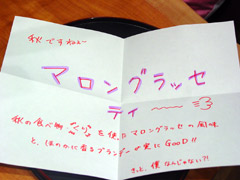 秋ですねぇ
マロングラッセ
ティ
秋の食べ物 "くり" を使った マロングラッセの風味
と、ほのかに香るブランデーが実にGOOD!!
きっと、僕なんじゃない?!